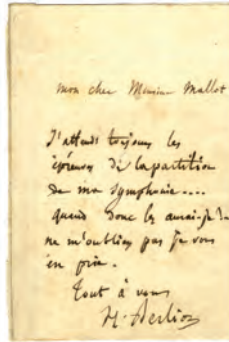 mon cher Monsieur Mallot
J'attends toujours les
épreuves de la partition
de ma symphonie....
quand donc les aurai-je ?
ne m'oubliez pas je vous
en prie.
Tout à vous
H. Berlioz